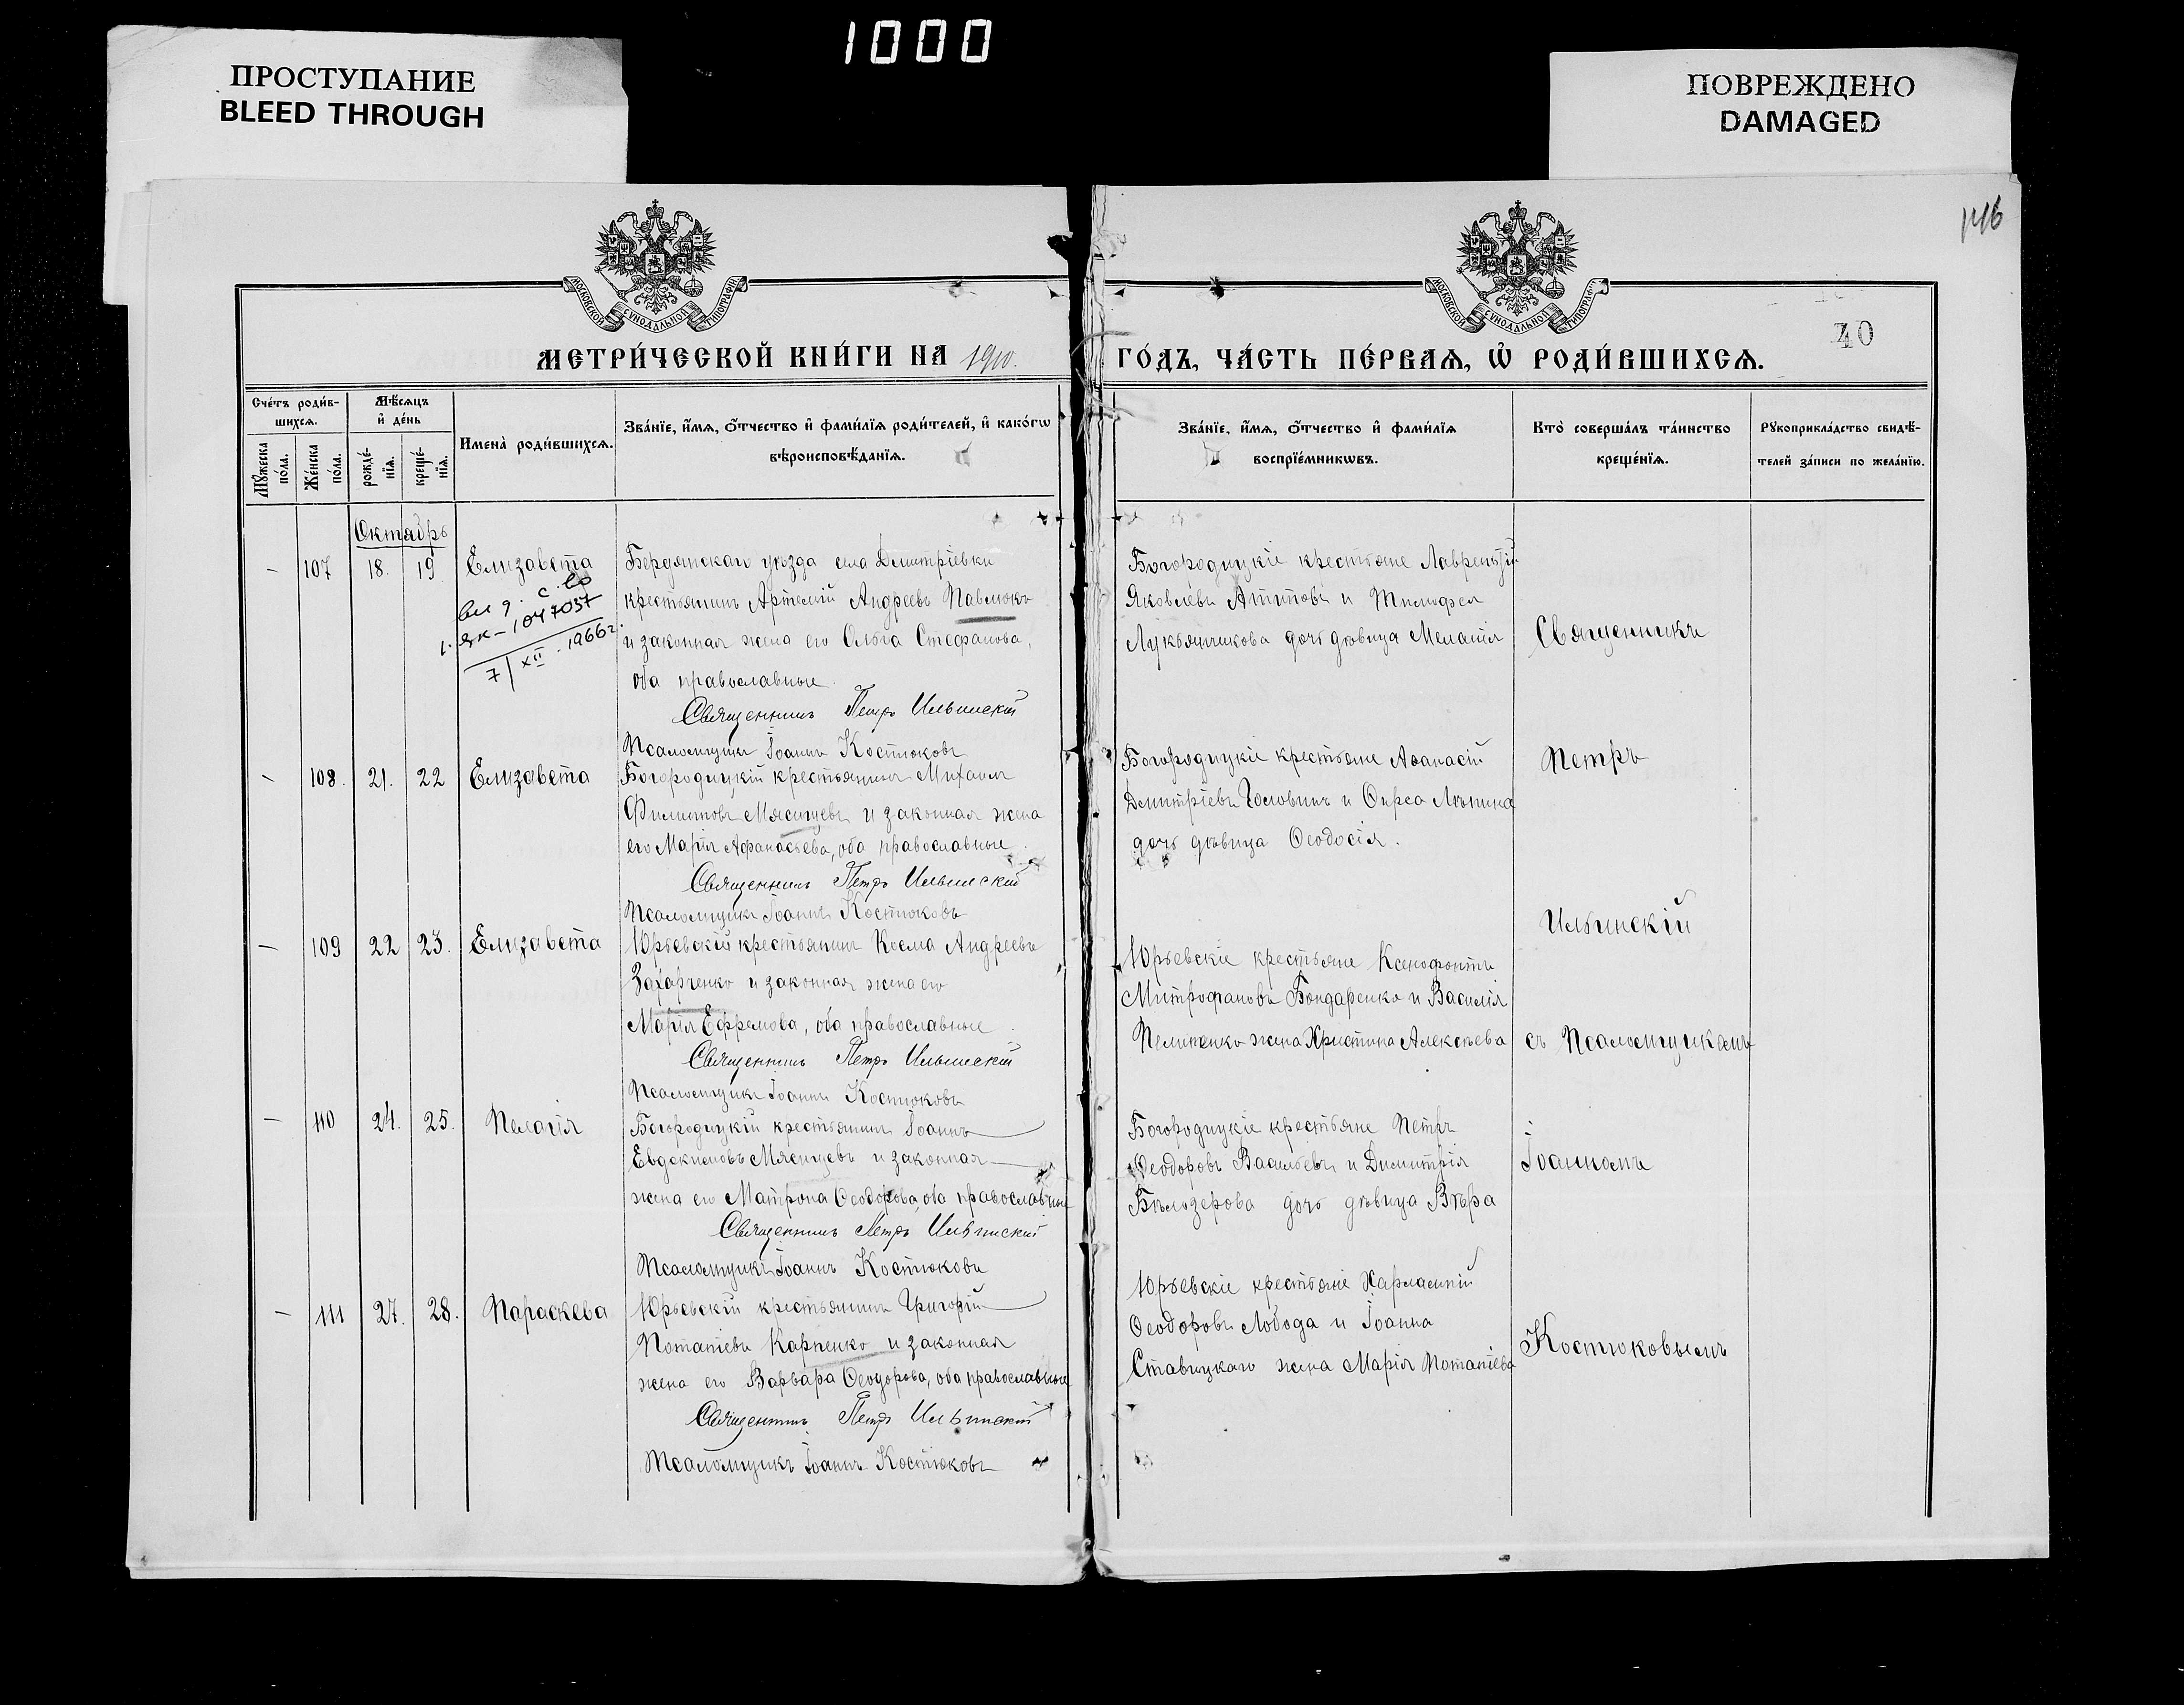 1000
ПРОСТУПАНИЕ
BLEED THROUGH
ПОВРЕЖДЕНО
DAMAGED
146
40
МОСКОВСКОЙ СѴНОДАЛЬНОЙ ТИПОГРАФІИ
МОСКОВСКОЙ СѴНОДАЛЬНОЙ ТИПОГРАФІИ
МЕТРИ́ЧЕСКОЙ КНИ́ГИ НА 1910.
ГО́ДЪ, ЧА́СТЬ ПЕ́РВАѦ, Ѡ҆ РОДИ́ВШИХСѦ.
Сче́тъ роди́в-
шихсѧ.
Мѣ́сѧцъ
и҆ де́нь
Мꙋ́жеска
по́ла.
Же́нска
по́ла.
рожде́-
нїѧ.
креще́-
нїѧ.
Имена̀ роди́вшихсѧ.
Зва́нїе, и҆́мѧ, ѻ҆́тчество и҆ фами́лїѧ роди́телей, и҆ како́гѡ
вѣроисповѣ́данїѧ.
Зва́нїе, и҆́мѧ, ѻ҆́тчество и҆ фами́лїѧ
воспрїе́мникѡвъ.
Кто̀ соверша́лъ та́инство
креще́нїѧ.
Рꙋкоприкла́дство свидѣ́-
телей за́писи по жела́нїю.
Октябрь
— 107 18. 19 Елизавета
7/XII 1966г.
Бердянскаго уѣзда села Димитріевки
крестьянинъ Артемій Андреевъ Павлюкъ
и законная жена его Ольга Стефанова,
оба православные.
Священникъ Петръ Ильинскій
Псаломщикъ Іоаннъ Костюковъ
Богородицкіе крестьяне Лаврентій
Яковлевъ Антиповъ и Тимофея
Лукьянчикова дочь дѣвица Меланія
— 108. 21. 22 Елизавета
Богородицкій крестьянинъ Михаилъ
Филиповъ Мясищевъ и законная жена
его Марія Афанасьева, оба православные.
Священникъ Петръ Ильинскій
Псаломщикъ Іоаннъ Костюковъ
Богородицкіе крестьяне Аѳанасій
Димитріевъ Головинъ и Ѳирса Лѣнина
дочь дѣвица Ѳеодосія.
— 109 22 23. Елизавета
Юрьевскій крестьянинъ Косма Андреевъ
Захарченко и законная жена его
Марія Ефремова, оба православные.
Священникъ Петръ Ильинскій
Псаломщикъ Іоаннъ Костюковъ
Юрьевскіе крестьяне Ксенофонтъ
Митрофановъ Бондаренко и Василія
Пелипенко жена Христина Алексѣева
— 110 24. 25. Пелагія
Богородицкій крестьянинъ Іоаннъ
Евдокимовъ Мясищевъ и законная
жена его Матрона Ѳеодорова, оба православные
Священникъ Петръ Ильинскій
Псаломщикъ Іоаннъ Костюковъ
Богородицкіе крестьяне Петръ
Ѳеодоровъ Васильевъ и Димитрія
Бѣлозерова дочь дѣвица Вѣра
— 111 27. 28. Параскева
Юрьевскій крестьянинъ Григорій
Потапіевъ Карпенко и законная
жена его Варвара Ѳеодорова, оба православные
Священникъ Петръ Ильинскій
Псаломщикъ Іоаннъ Костюковъ
Юрьевскіе крестьяне Харлампій
Ѳеодоровъ Лобода и Іоанна
Ставицкаго жена Марія Потапіева
Священникъ
Петръ
Ильинскій
съ Псаломщикомъ
Іоанномъ
Костюковымъ